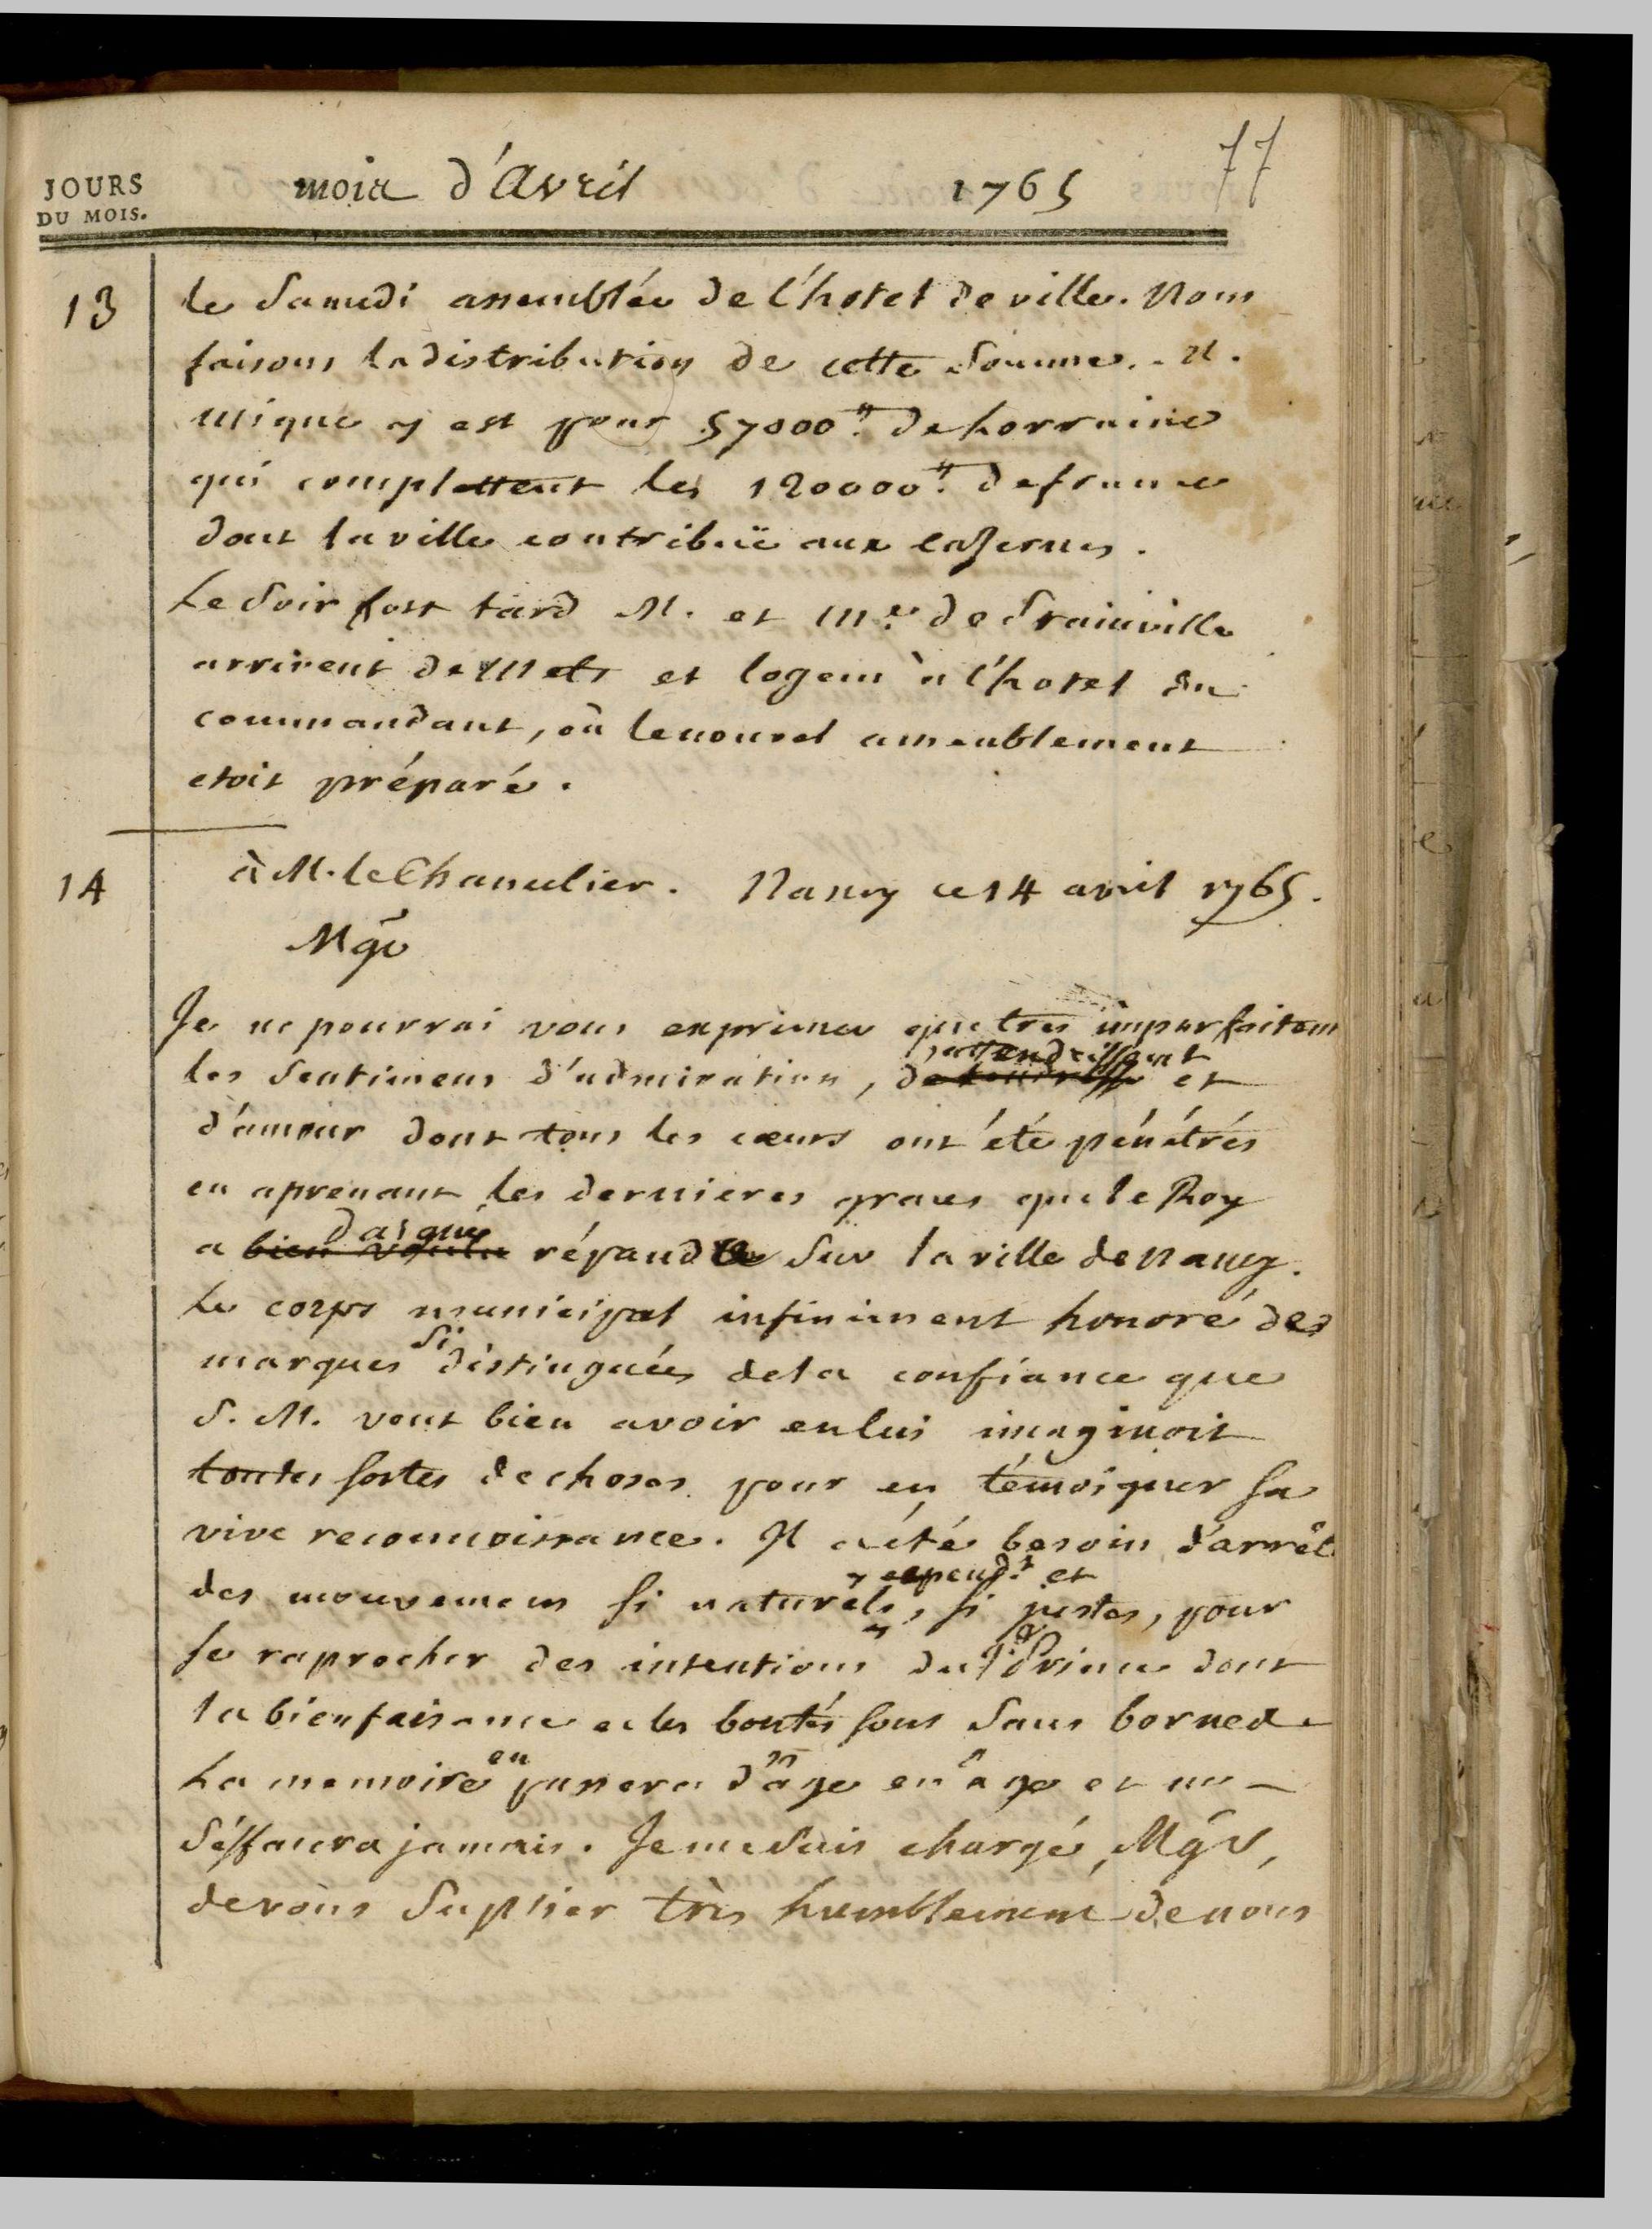 77
JOURS
DU MOIS.
mois d'Avril 1765
13
le Samedi assemblée de l'hotel de ville. Nous
faisons la distribution de cette Somme. M.
Mique y est pour 57000.ᵗᵗ de Lorraine
qui complettent les 120000.ᵗᵗ de france
dont la ville contribuë aux casernes.
Le Soir fort tard M. et Mᵉ de
arrivent de Mets et logent à l'hotel du
commandant, où le nouvel ameublement
etoit préparé.
14
à M. le Chancelier. Nancy ce 14 avril 1765.
Mgr
Je ne pourrai vous exprimer que tres imparfaitem
attendrissent
les Sentimens d'admiration, de tendresse et
d'amour dont tous les cœurs ont été pénétrés
en aprenant les dernieres graces que le Roy
daigné
a bien voulu répandre Sur la ville de Nancy.
Le corps municipal infiniment honoré des
marques si distinguées de la confiance que
S. M. veut bien avoir en lui imaginoit
toutes sortes de choses pour en témoigner sa
vive reconnoissance. Il a été besoin d'arrêt
cepend.ᵗ et
des mouvemens si naturels, si justes, pour
se raprocher des intentions du Prince dont
la bienfaisance et les bontés sont Sans bornes.
La memoire en passera d'âge en âge et ne
S'éffacera jamais. Je me Suis chargé, Mgr,
de vous Suplier très humblement de nous